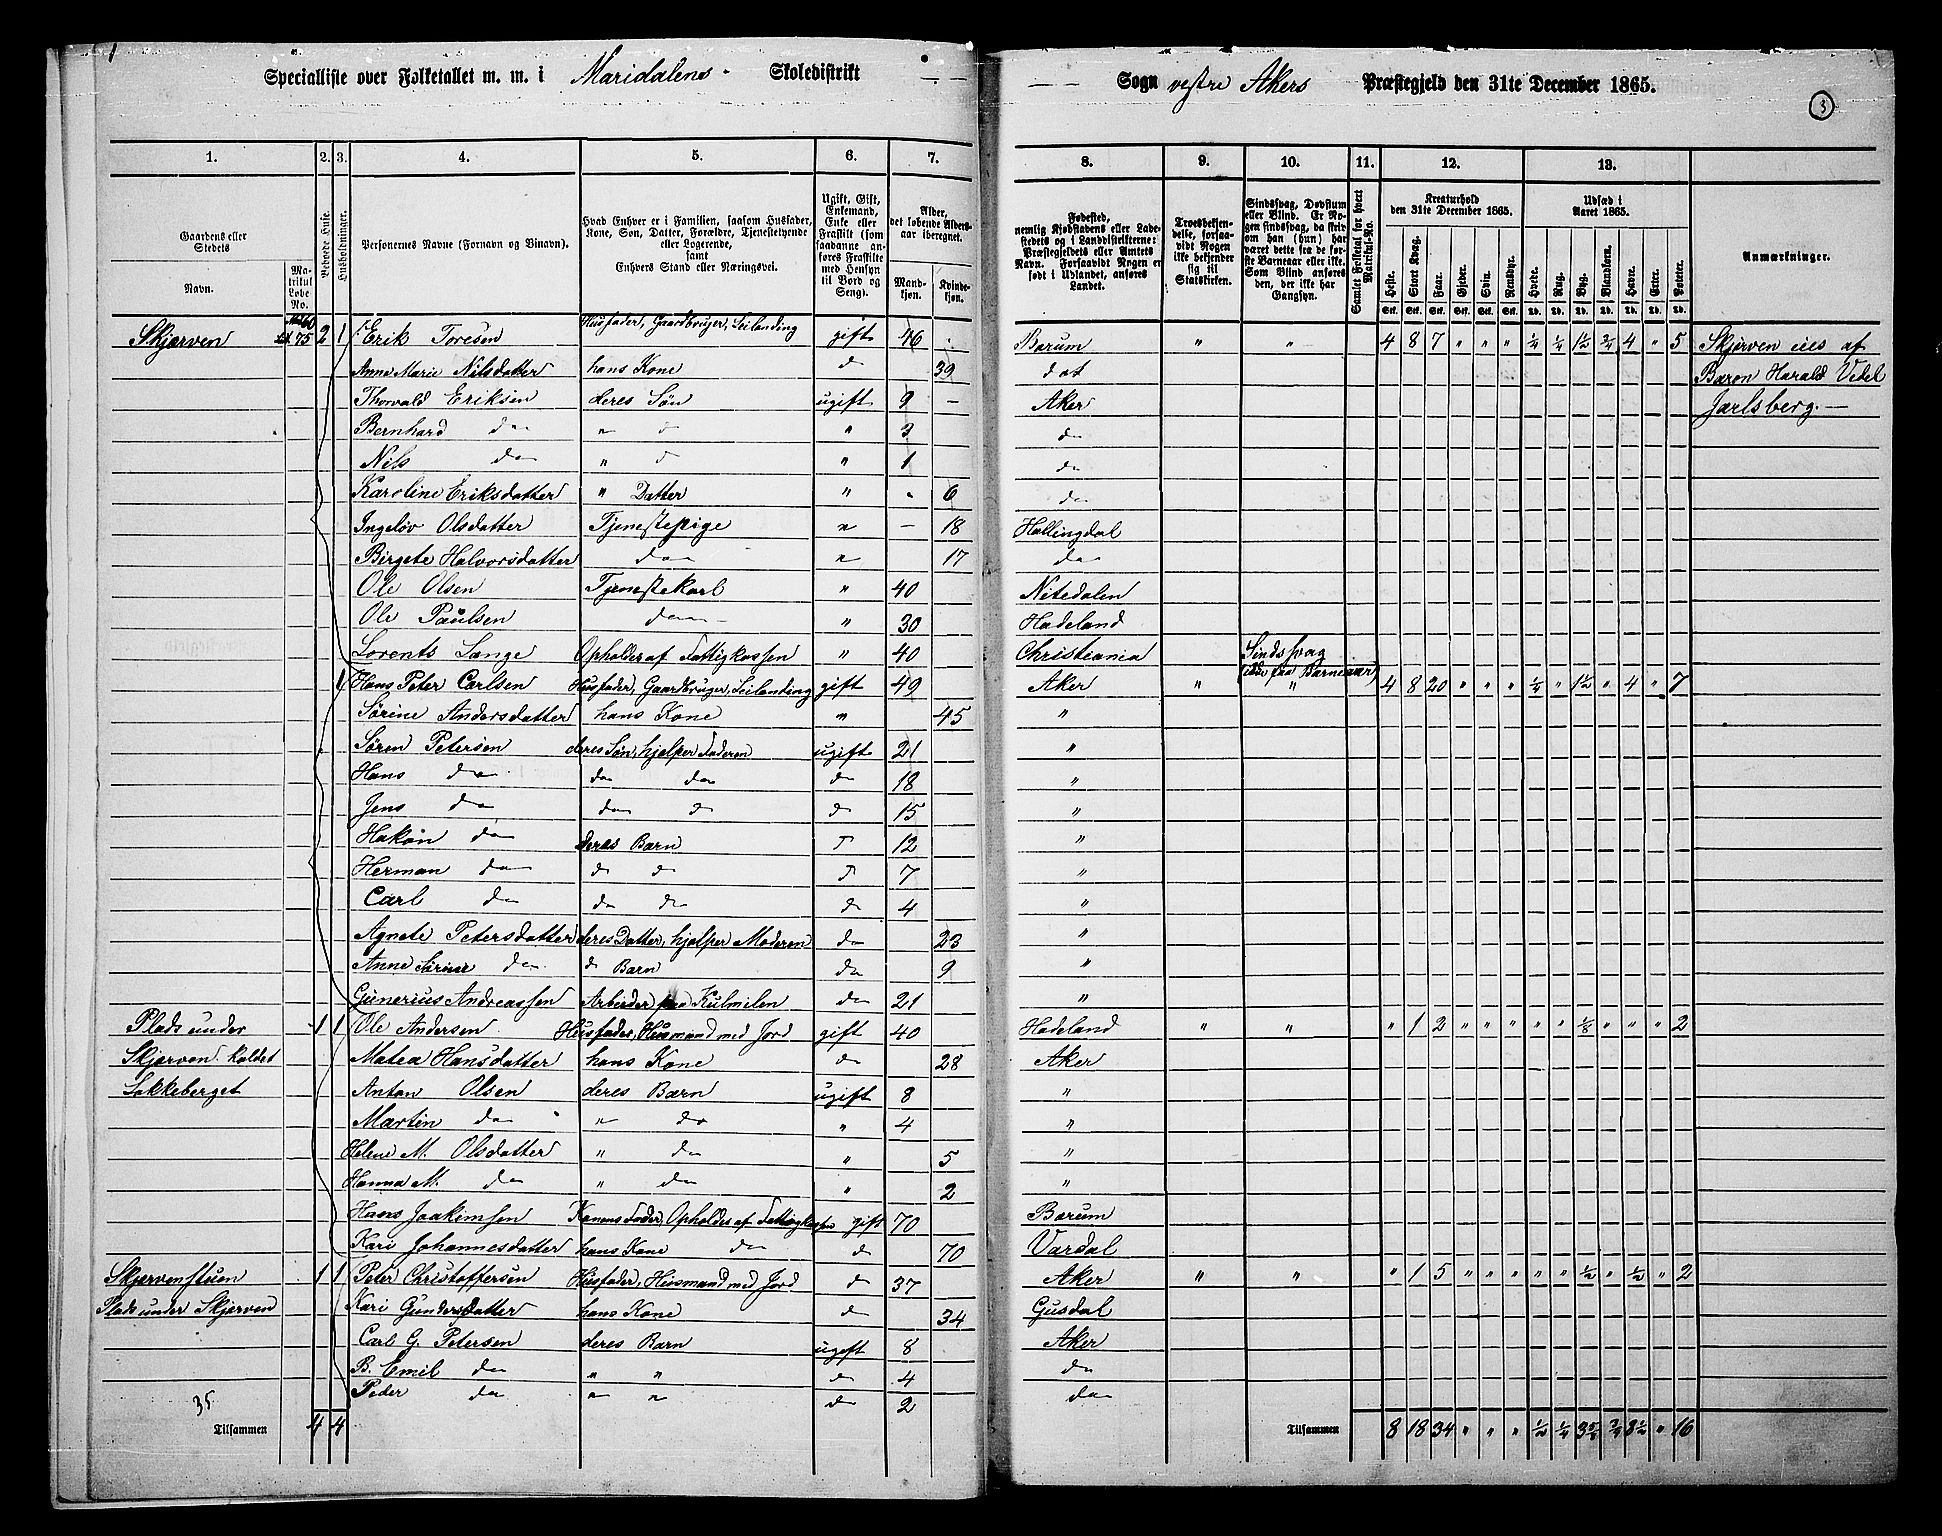 Specialliste over Folketallet m. m. i Maridalens Skoledistrikt — —
— — Sogn vestre Akers Præstegjeld den 31te December 1865.
3
1. 2. 3. 4. 5. 6. 7. 8. 9. 10. 11. 12. 13.
Gaardens eller Stedets
Navn.
Matrikul Løbe No.
Beboede Huse.
Husholdninger.
Personernes Navne (Fornavn og Binavn).
Hvad Enhver er i Familien, saasom Husfader, Kone, Søn, Datter, Forældre, Tjenestetyende eller Logerende, samt Enhvers Stand eller Næringsvei.
Ugift, Gift, Enkemand, Enke eller Fraskilt (som saadanne anføres Fraskilte med Hensyn til Bord og Seng).
Alder, det løbende Alders-aar iberegnet.
Mandkjøn. Kvindekjøn.
Fødested, nemlig Kjøbstadens eller Ladestedets og i Landdistrikterne: Præstegjeldets eller Amtets Navn. Forsaavidt Nogen er født i Udlandet, anføres Landet.
Troesbekjendelse, forsaavidt Nogen ikke bekjender sig til Statskirken.
Sindssvag, Døvstum eller Blind. Er Nogen sindssvag, da hvidt han (hun) har været dette fra de første Barneaar eller ikke. Som Blind anføres den, der ikke har Gangsyn.
Samlet Folketal for hvert Matrikul-No.
Kreaturhold den 31te December 1865.
Heste. Stort Kvæg. Faar. Gjeder. Svin. Rensdyr.
Udsæd i Aaret 1865.
Hvede. Rug. Byg. Blandkorn. Havre. Erter. Poteter.
Anmærkninger.
Skjærven 75 2 1 Erik Toresen Husfader, Gaardbruger, Leilænding gift 46 Bærum " " 4 8 7 " " " ¼ ¼ 1½ ¾ 4 " 5 Skjærven eies af
Anne Marie Nilsdatter hans Kone do 39 dot Baron Harald Vedel
Thorvald Eriksen deres Søn ugift 9 — Aker Jarlsberg. —
Bernhard do " do " 3 do
Nils do " do " 1 do
Karoline Eriksdatter " Datter " " 6 do
Ingeløv Olsdatter Tjenestepige " — 18 Hallingdal
Birgete Halvorsdatter do " 17 do
Ole Olsen Tjenestekarl " 40 Nitedalen
Ole Paulsen do " 30 Hadeland
Lorents Lange Opholdes af Fattigkassen " 40 Christiania Sindssvag
(ikke fra Barneaar)
1 Hans Peter Carlsen Husfader, Gaardbruger, Leilænding gift 49 Aker " " 4 8 20 " " " ¼ " 1½ " 4 " 7
Sørine Andersdatter hans Kone " 45 "
Søren Petersen deres Søn, hjelper Faderen ugift 21 "
Hans do do do do 18 "
Jens do do do do 15 "
Hakon do deres Barn do 12 "
Herman do do do do 7 "
Carl do do do do 4 "
Agnete Petersdatter deres Datter, hjelper Moderen do 23 "
Anne Sørine do do Barn do 9 "
Gunerius Andreassen Arbeider paa Kulmilen do 21 "
Plads under 1 1 Ole Andersen Husfader, Husmand med Jord gift 40 Hadeland " " " 1 2 " " " " " ⅛ " " " 2
Skjærven kaldet Matea Hansdatter hans Kone do 28 Aker
Sakkeberget Anton Olsen deres Barn ugift 8 "
Martin do " do " 4 "
Helene M. Olsdatter " do " 5 "
Hanna M. do " do " 2 "
Hans Joakimsen Konens Fader, Opholdes af Fattigkassen gift 70 Bærum
Kari Johannesdatter hans Kone do do 70 Vardal
Skjærvenstuen 1 1 Peter Christoffersen Husfader, Husmand med Jord do 37 Aker " " " 1 5 " " " " " ½ " ½ " 2
Plads under Skjærven Kari Gundersdatter hans Kone do 34 Gusdal
Carl G. Petersen deres Barn ugift 8 Aker
B. Emil do " " do 4 do
Peder do " " do 2 do
35
Tilsammen 4 4 Tilsammen 8 18 34 " " " ½ ¼ 3⅝ ¾ 8½ " 16